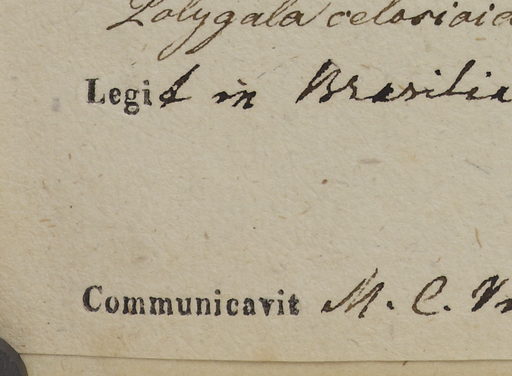 Polygala celosioid
Legit in Brasilia
Communicavit M. C.